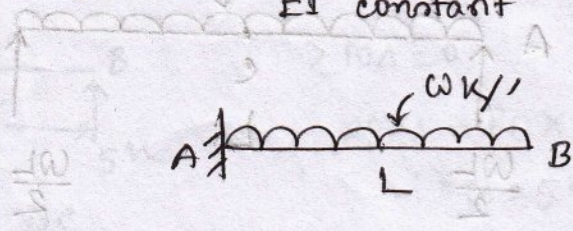 EI constant
ω K/'
A B
L